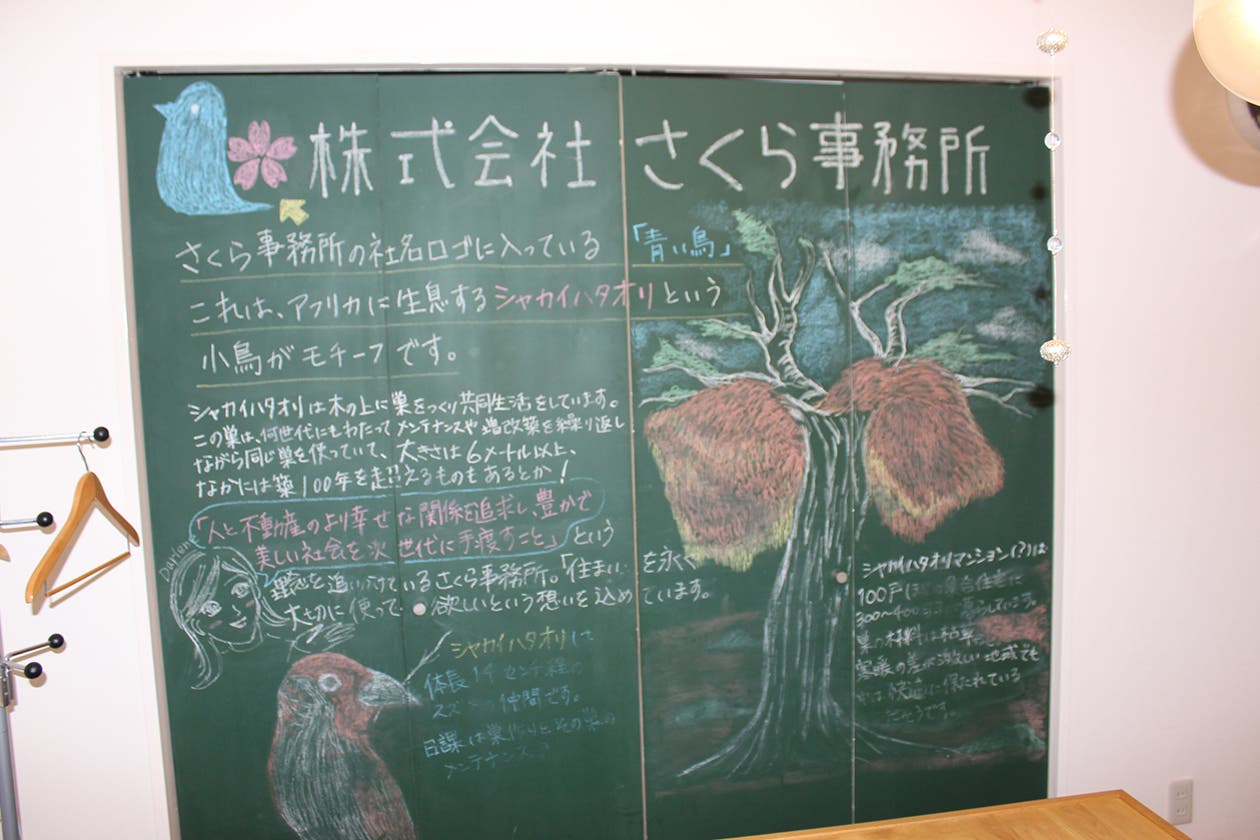 株式会社 さくら事務所
さくら事務所の社名ロゴに入っている「青い鳥」
これは、アフリカに生息するシャカイハタオリという
小鳥がモチーフです。
シャカイハタオリは木の上に巣をつくり共同生活をしています。
この巣は、何世代にもわたってメンテナンスや増改築を繰り返し
ながら同じ巣を使っていて、大きさは6メートル以上、
なかには築100年を超えるものもあるとか!
「人と不動産のより幸せな関係を追求し、豊かで
美しい社会を次世代に手渡すこと」という
理念を追い付けているさくら事務所。「住まい を永く
大切に使って欲しいという想いを込め ています。
シャカイハタオリ
体長14センチ程の
スズメの仲間です。
日課は巣作りとその巣の
メンテナンス
シャカイハタオリマンション(?)は
100戸
300〜400 暮らしている。
巣の材料は枯草
寒暖の差が激しい地域でも
快適に保たれている
そうです。